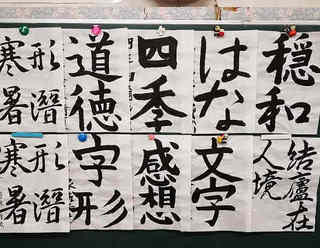 穏和
はな
四季
道徳
形潛
寒暑
結廬在
人境
文字
感想
字形
形潛
寒暑